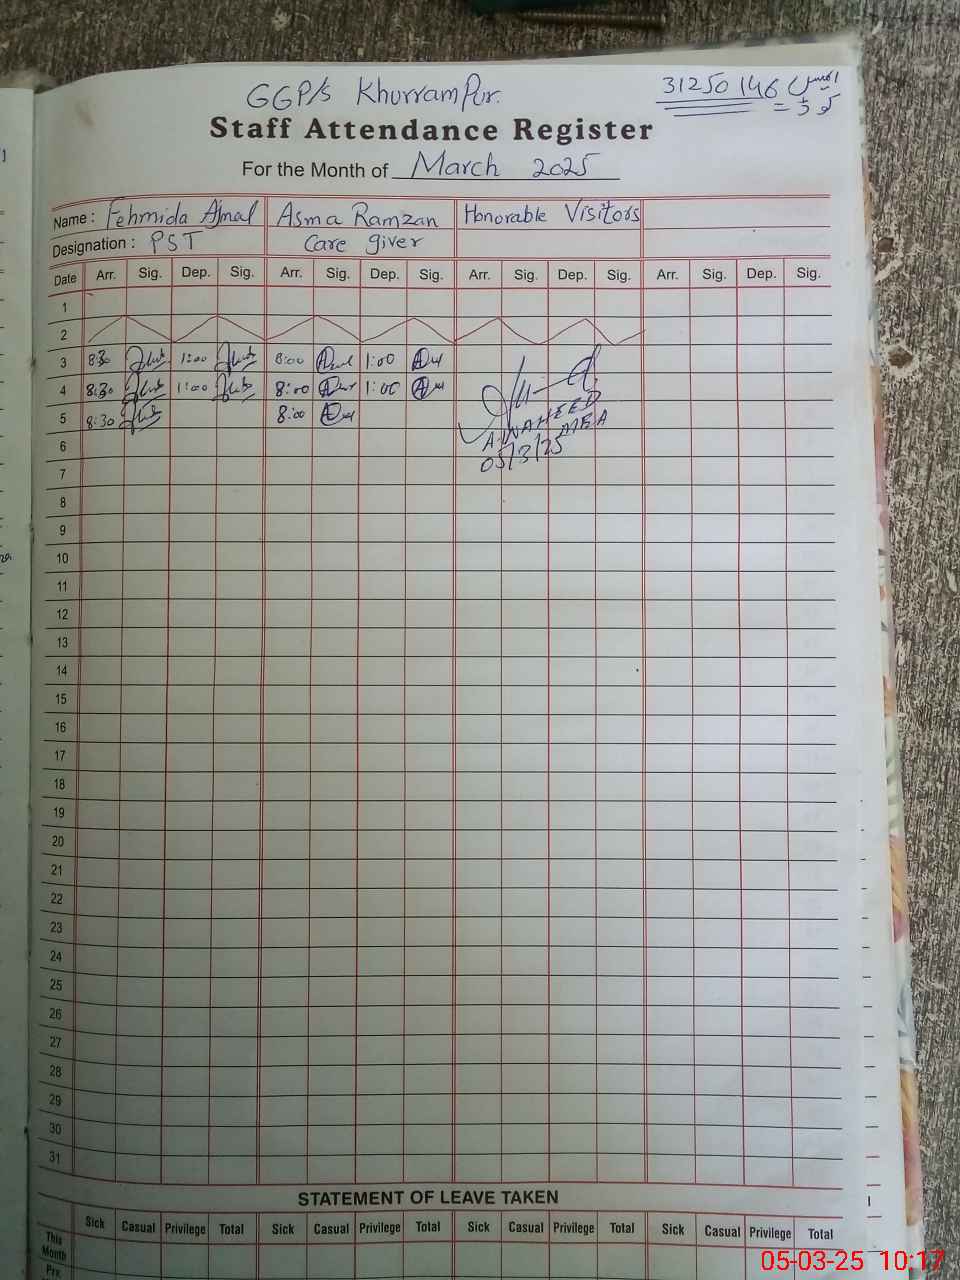 GGP/s KhurramPur.
31250146
Staff Attendance Register
For the Month of March 2025
Name : Fehmida Ajmal Asma Ramzan Honorable Visitors
Designation : PST Care giver
Date Arr. Sig. Dep. Sig. Arr. Sig. Dep. Sig. Arr. Sig. Dep. Sig. Arr. Sig. Dep. Sig.
1
2
3 8:30 1:00 8:00 1:00
4 8:30 1:00 8:00 1:00
5 8:30 8:00
A.WAHEED
AEA
05/3/25
6
7
8
9
10
11
12
13
14
15
16
17
18
19
20
21
22
23
24
25
26
27
28
29
30
31
STATEMENT OF LEAVE TAKEN
Sick Casual Privilege Total Sick Casual Privilege Total Sick Casual Privilege Total Sick Casual Privilege Total
This
Month
Prv.
05-03-25 10:17